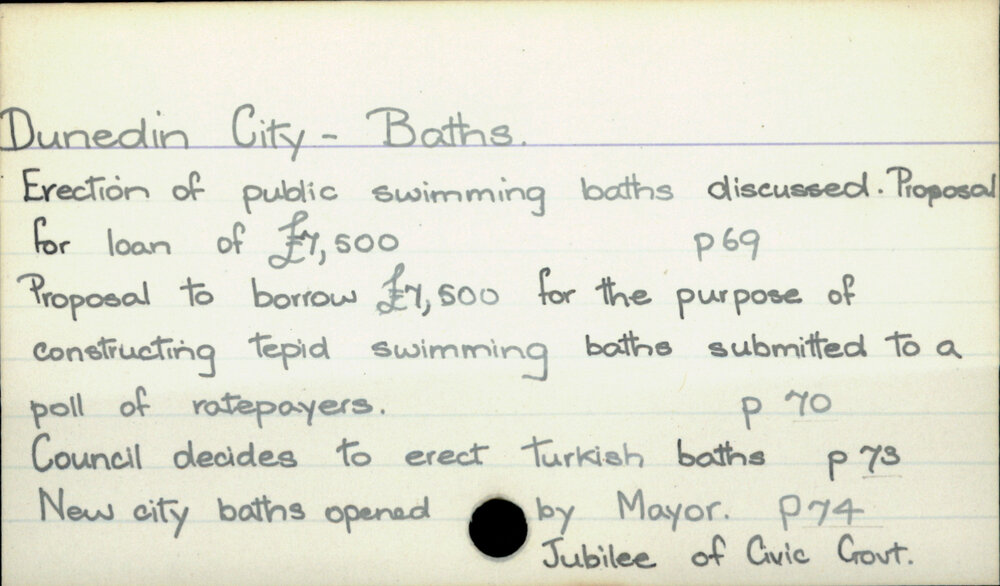 Dunedin City - Baths.
Erection of public swimming baths discussed. Proposal
for loan of £7,500 p69
Proposal to borrow £7,500 for the purpose of
constructing tepid swimming baths submitted to a
poll of ratepayers. p 70
Council decides to erect Turkish baths p 73
New city baths opened by Mayor. p74
Jubilee of Civic Govt.